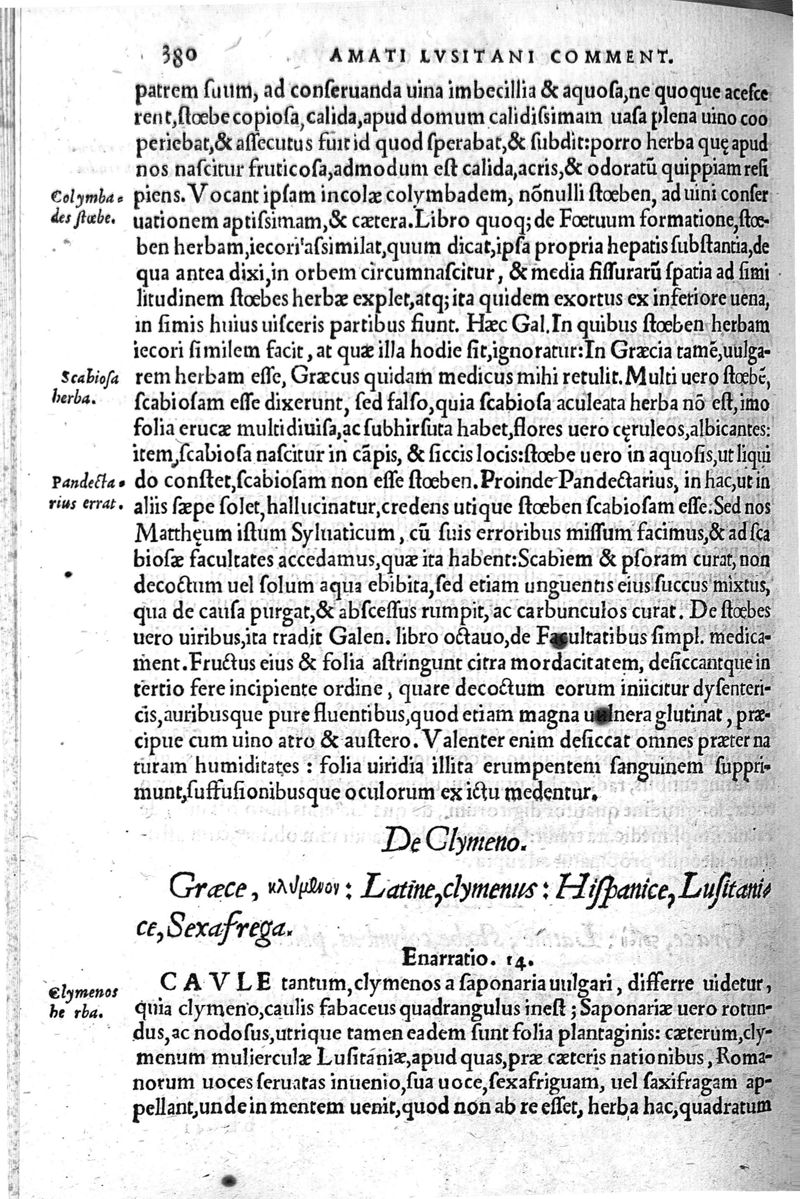 380 AMATI LVSITANI COMMENT.
patrem ſuum, ad conſeruanda uina imbecillia & aquoſa, ne quoque aceſce
rent, ſtœbe copioſa, calida, apud domum calidiſsimam uaſa plena uino coo
periebat, & aſſecutus fuit id quod ſperabat, & ſubdit: porro herba quę apud
nos naſcitur fruticoſa, admodum eſt calida, acris, & odoratū quippiam reſi
Colymba-
des ſtœbe.
piens. Vocant ipſam incolæ colymbadem, nōnulli ſtœben, ad uini conſer
uationem aptiſsimam, & cætera. Libro quoq; de Fœtuum formatione, ſtœ-
ben herbam, iecori aſsimilat, quum dicat, ipſa propria hepatis ſubſtantia, de
qua antea dixi, in orbem circumnaſcitur, & media fiſſurarū ſpatia ad ſimi
litudinem ſtœbes herbæ explet, atq; ita quidem exortus ex inferiore uena,
in ſimis huius uiſceris partibus fiunt. Hæc Gal. In quibus ſtœben herbam
iecori ſimilem facit, at quæ illa hodie ſit, ignoratur: In Græcia tamē, uulga-
Scabioſa
herba.
rem herbam eſſe, Græcus quidam medicus mihi retulit. Multi uero ſtœbē,
ſcabioſam eſſe dixerunt, ſed falſo, quia ſcabioſa aculeata herba nō eſt, imo
folia erucæ multi diuiſa, ac ſubhirſuta habet, flores uero cęruleos, albicantes:
item, ſcabioſa naſcitur in cāpis, & ſiccis locis: ſtœbe uero in aquoſis, ut liqui
Pandecta-
rius errat.
do conſtet, ſcabioſam non eſſe ſtœben. Proinde Pandectarius, in hac, ut in
aliis ſæpe ſolet, hallucinatur, credens utique ſtœben ſcabioſam eſſe. Sed nos
Matthęum iſtum Syluaticum, cū ſuis erroribus miſſum facimus, & ad ſca
bioſæ facultates accedamus, quæ ita habent: Scabiem & pſoram curat, non
decoctum uel ſolum aqua ebibita, ſed etiam unguentis eius ſuccus mixtus,
qua de cauſa purgat, & abſceſſus rumpit, ac carbunculos curat. De ſtœbes
uero uiribus, ita tradit Galen. libro octauo, de Facultatibus ſimpl. medica-
ment. Fructus eius & folia aſtringunt citra mordacitatem, deſiccantque in
tertio fere incipiente ordine, quare decoctum eorum iniicitur dyſenteri-
cis, auribusque pure fluentibus, quod etiam magna uulnera glutinat, præ-
cipue cum uino atro & auſtero. Valenter enim deſiccat omnes præter na
turam humiditates: folia uiridia illita erumpentem ſanguinem ſuppri-
munt, ſuffuſionibusque oculorum ex ictu medentur.
De Clymeno.
Græce, κλύμενον: Latine, clymenus: Hiſpanice, Luſitani-
ce, Sexafrega.
Enarratio. 14.
Clymenos
he rba.
CAVLE tantum, clymenos a ſaponaria uulgari, differre uidetur,
quia clymeno, caulis fabaceus quadrangulus ineſt; Saponariæ uero rotun-
dus, ac nodoſus, utrique tamen eadem ſunt folia plantaginis: cæterum, cly-
menum mulierculæ Luſitaniæ, apud quas, præ cæteris nationibus, Roma-
norum uoces ſeruatas inuenio, ſua uoce, ſexafriguam, uel ſaxifragam ap-
pellant, unde in mentem uenit, quod non ab re eſſet, herba hac, quadratum